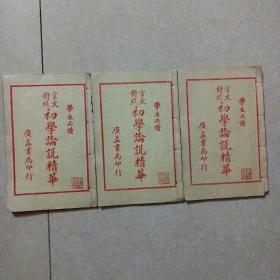 學生必讀
言文對照
初學論說精華
廣益書局印行
學生必讀
言文對照
初學論說精華
廣益書局印行
學生必讀
言文對照
初學論說精華
廣益書局印行